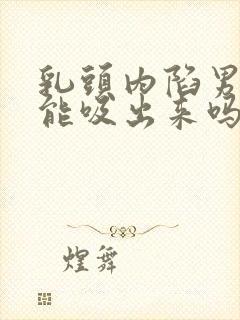 乳頭内陷男
能吸出来吗
煌舞